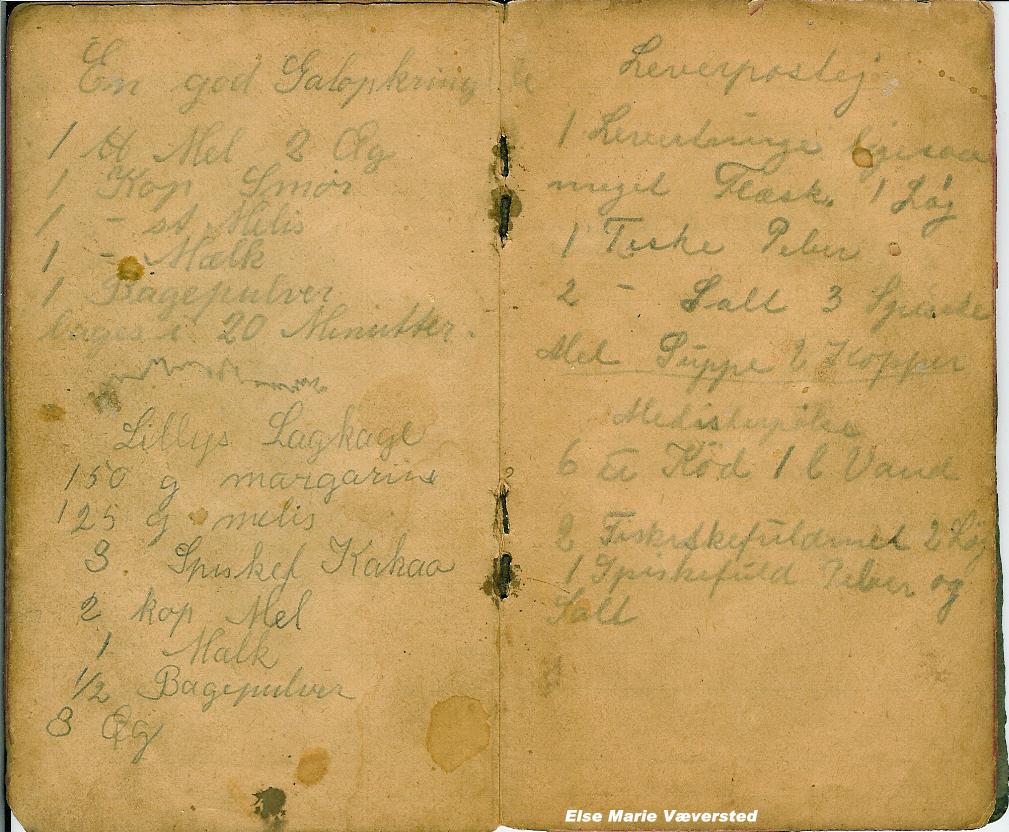 En god Galopkringle
1 ℔ Mel 2 Æg
1 Kop Smør
1 - st Melis
1 - Mælk
1 Bagepulver
bages i 20 Minutter.
Lillys Lagkage
150 g margarine
125 g melis
3 Spiskef Kakao
2 kop Mel
1 Mælk
1/2 Bagepulver
3 Æg
Leverpostej
1 ligesaa
meget Flæsk. 1 Løg
1 Teske Peber
2 - Salt 3 Speske
Mel Suppe 2 Kopper
Medisterpølse
6 ℔ Kød 1 l Vand
2 2 Løg
1 Spiskefuld Peber og
Salt
Else Marie Væversted